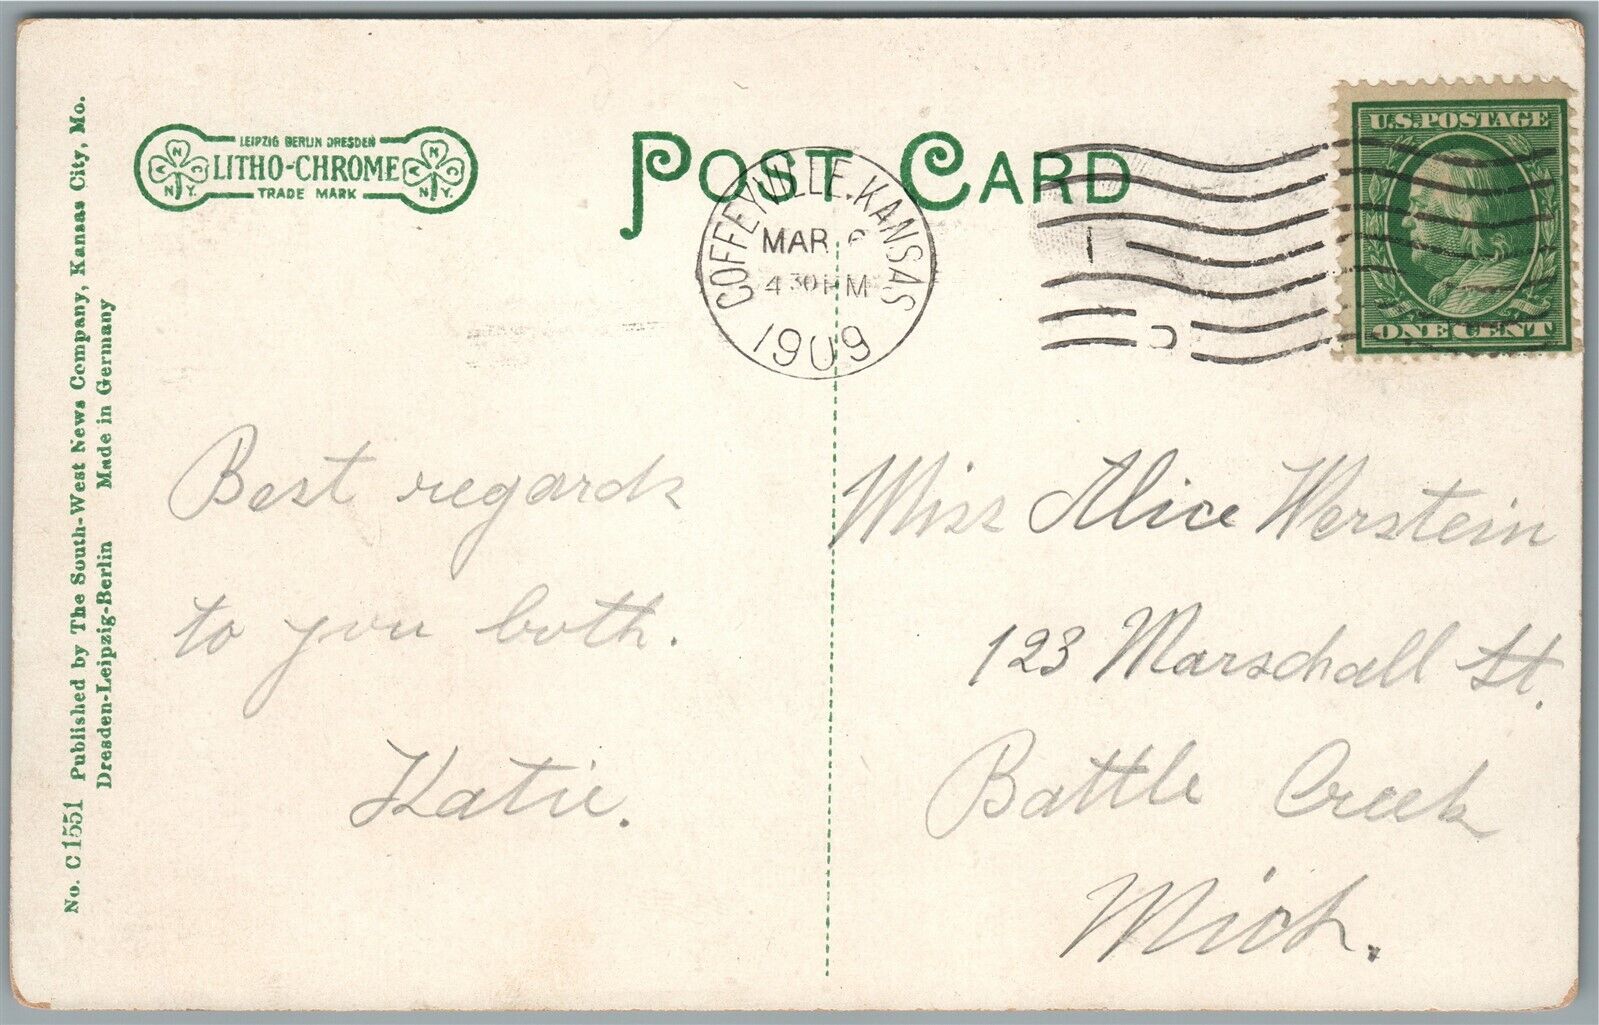 No. C 1551 Published by The South-West News Company, Kansas City, Mo.
Dresden-Leipzig-Berlin Made in Germany
LEIPZIG BERLIN DRESDEN
LITHO-CHROME
TRADE MARK
N.Y.
N.Y.
POST CARD
COFFEYVILLE, KANSAS
MAR 6
4 30 PM
1909
U.S. POSTAGE
ONE CENT
Best regards
to you both.
Katie.
Miss Alice Werstein
123 Marschall St.
Battle Creek
Mich.